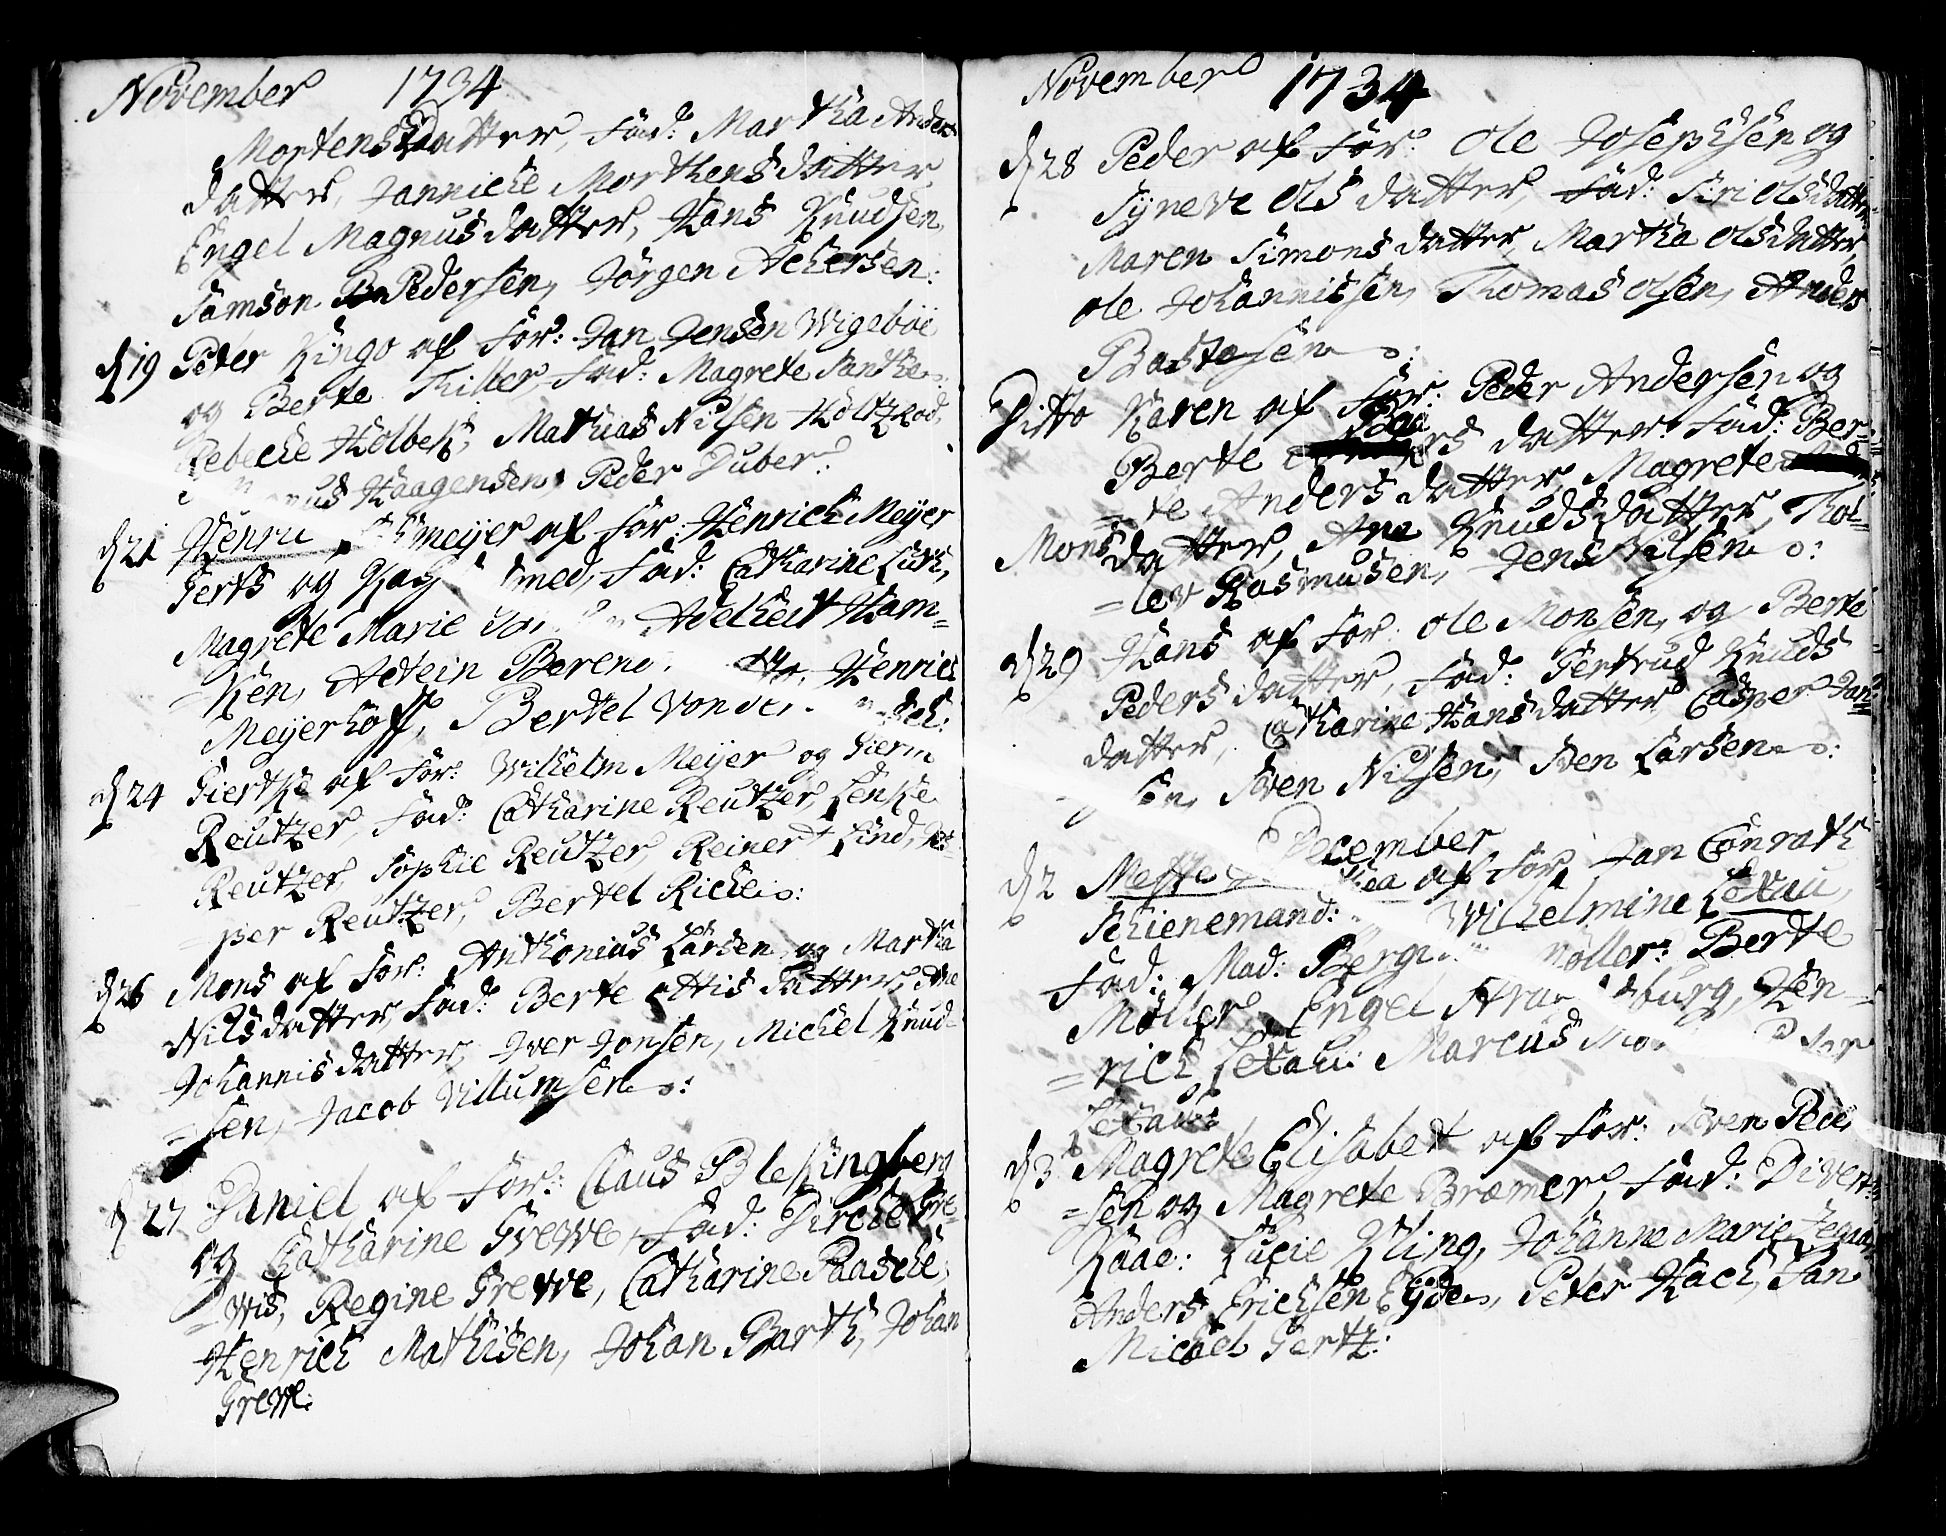 November 1734
Mortensdatter, Fad: Martha Anders
datter, Jannicke Morthensdatter
Engel Magnusdatter, Hans Knudsen
Samson Pedersen, Jörgen Achersen:
d 19 Peter Kingo af For: Jan Jensen Wigeböe
og Berte Tiller, Fad: Magrete
Rebecke Holbek, Mathias Nilsen Holtzkod,
Haagensen, Peder Duber:
d 21 Henri meijer af For: Henrich Meijer
Gerts og Fad: Catharine Lurk,
Magrete Marie Adelheit Ham=
=ken, Actein Beren Henrich
Meijerhoff, Bertel Vonder
d 24 Giertke af For: Wilhelm Meijer og
Reutzer, Fad: Catharine Reutzer, Lenke
Reutzer, Sophie Reutzer, Reinert Lind,
=per Reutzer, Bertel Riche:
d 26 Mons af For: Anthonius Larsen og Martha
Nilsdatter, Fad: Berte Ottisdatter, Ane
Johannisdatter, Iver Jonsen, Michel Knud=
=sen, Jacob Villumsen:
d 27 Daniel af For: Claus Blekingberg
og Chatharine Grewe, Fad: Dirche Gre=
=wis, Regine Grewe, Catharine Paasche,
Henrich Mathisen, Johan Barth, Johan
Grewe:
November 1734
d 28 Peder af For: Ole Josephsen og
Syneve Olsdatter, Fad: Siri Olsdatter
Maren Simonsdatter, Martha Olsdatter,
Ole Johannissen, Thomas Olsen, Anders
Bastesen:
Ditto Karen af For: Peder Andersen og
Berte datter: Fad: Ber=
=te Andersdatter, Magrete
Monsdatter, Ane Knudsdatter, Tol=
=lev Rasmusen, Jens Nilsen:
d 29 Hans af For: Ole Monsen, og Berte
Pedersdatter, Fad: Gertrud Knuds
datter, Catharine Hansdatter Casper Jan=
Sven Nilsen, Sven Larsen:
December
d 2 Mette af For: Jan Conrath
Schienemand: Wilhelmine Letzau,
Fad: Mad: Möller: Berte
Möller, Engel Hen=
=rich Letzau: Marcus
Letzau:
d 3 Magrete Elisabet af For: Sven Peder
=sen og Magrete Bræmer, Fad: Divert
Kaae: Lucie Kling, Johanne Marie
Anders Erichsen Eide, Peter Hach, Jan
Micael Gertz: